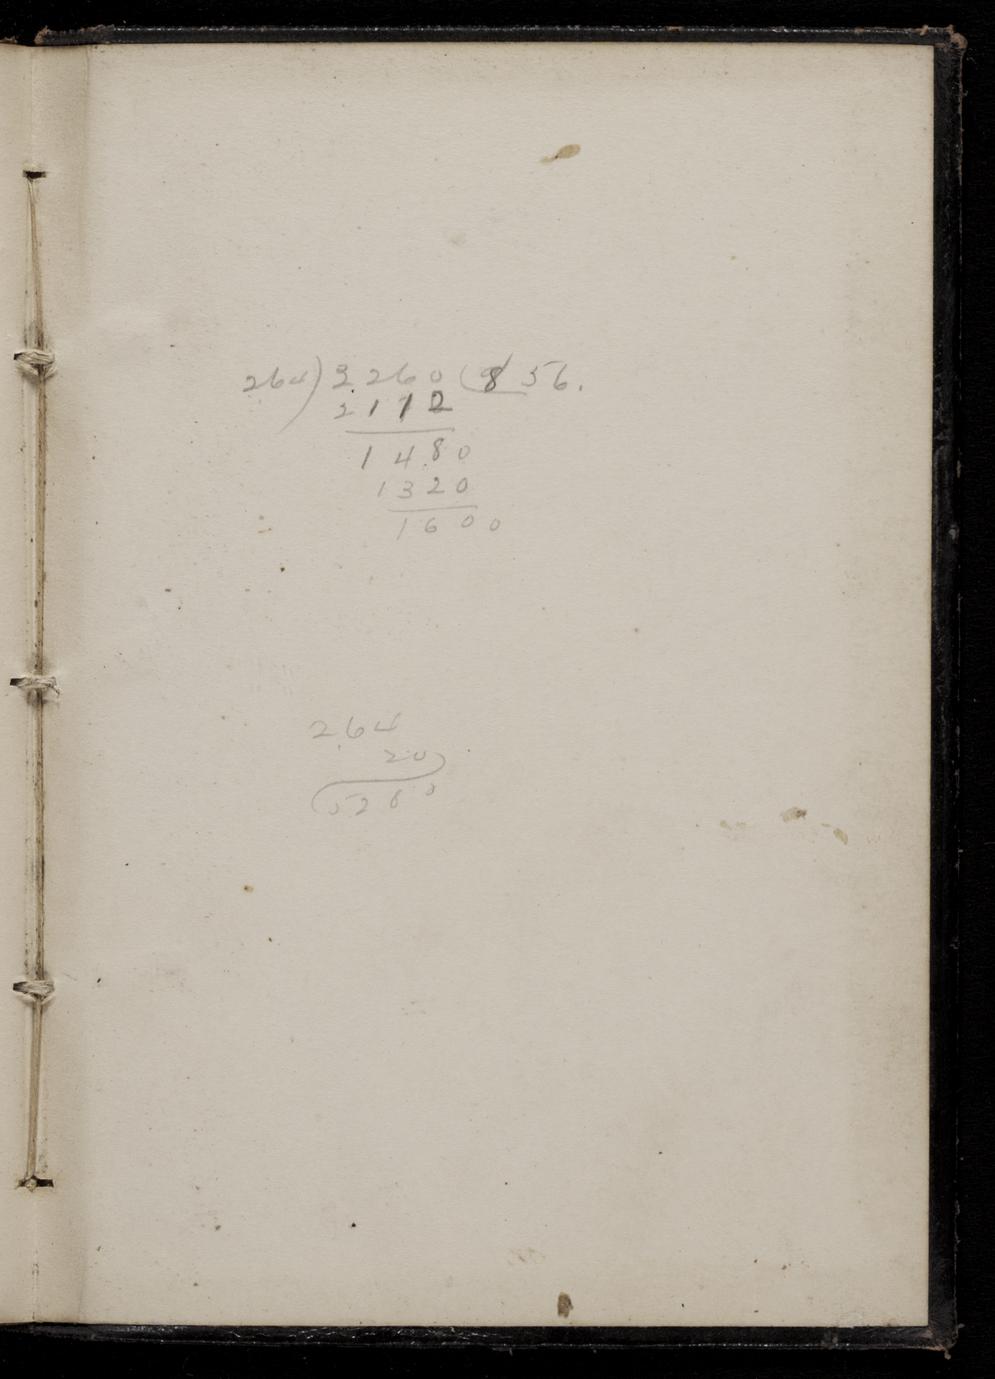 264) 3260 (8 56.
2112
1480
1320
1600
264
20
5280